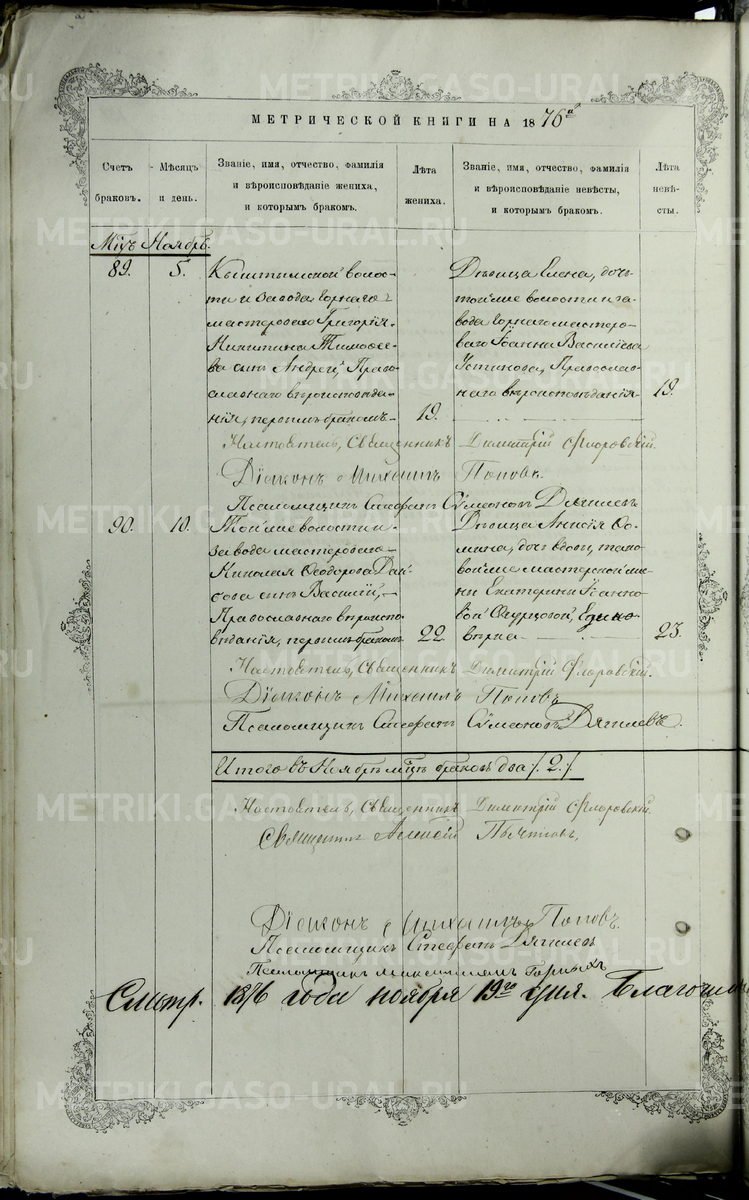 МЕТРИЧЕСКОЙ КНИГИ НА 1876й
Счетъ браковъ.
Мѣсяцъ и день.
Званіе, имя, отчество, фамилія и вѣроисповѣданіе жениха, и которымъ бракомъ.
Лѣта жениха.
Званіе, имя, отчество, фамилія и вѣроисповѣданіе невѣсты, и которымъ бракомъ.
Лѣта невѣсты.
Мцъ Ноябрь.
89.
5.
Кыштымской волос-
ти и завода горнаго
мастероваго Григорія
Никитина Тимофее-
ва сынъ Андрей, Право-
славнаго вѣроисповѣда-
нія, первымъ бракомъ
19.
Дѣвица Елена, дочь
той же волости и за-
вода горнаго мастеро-
ваго Іоанна Василіева
Устинова, Православ-
наго вѣроисповѣданія
19.
Настоятель, Священникъ Димитрій Флоровскій.
Діаконъ Михаилъ Поповъ.
Псаломщикъ Стефанъ Сѵмеоновъ Дягилевъ
90.
10.
Той же волости и
завода мастероваго
Николая Ѳеодорова
сынъ Василій,
Православнаго вѣроиспо-
вѣданія, первымъ бракомъ
22.
Дѣвица Анисія
дочь вдовы, тако-
вой же мастерской же-
ны Екатерины
вой Едино-
вѣрка
23.
Настоятель, Священникъ Димитрій Флоровскій.
Діаконъ Михаилъ Поповъ
Псаломщикъ Стефанъ Сѵмеоновъ Дягилевъ.
Итого въ Ноябрѣ мцѣ браковъ два /. 2 ./
Настоятель, Священникъ Димитрій Флоровскій.
Священникъ Алексій
Діаконъ Михаилъ Поповъ.
Псаломщикъ Стефанъ Дягилевъ
Псаломщикъ Максимиліанъ Горныхъ
Смотр. 1876 года ноября 19го дня. Благочин
METRIKI.GASO-URAL.RU